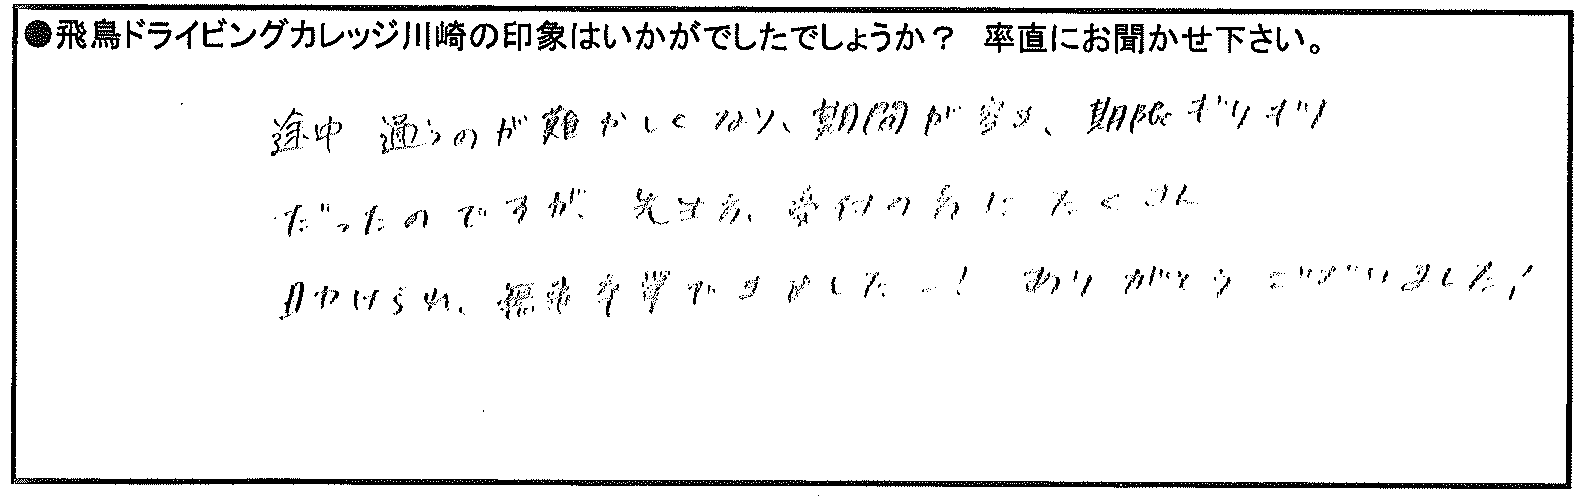 ●飛鳥ドライビングカレッジ川崎の印象はいかがでしたでしょうか？ 率直にお聞かせ下さい。
途中 通うのが難かしくなり、期間が空き、期限ギリギリ
だったのですが、先生方、受付の方にたくさん
助けられ、無事卒業できましたー！ ありがとうございました！